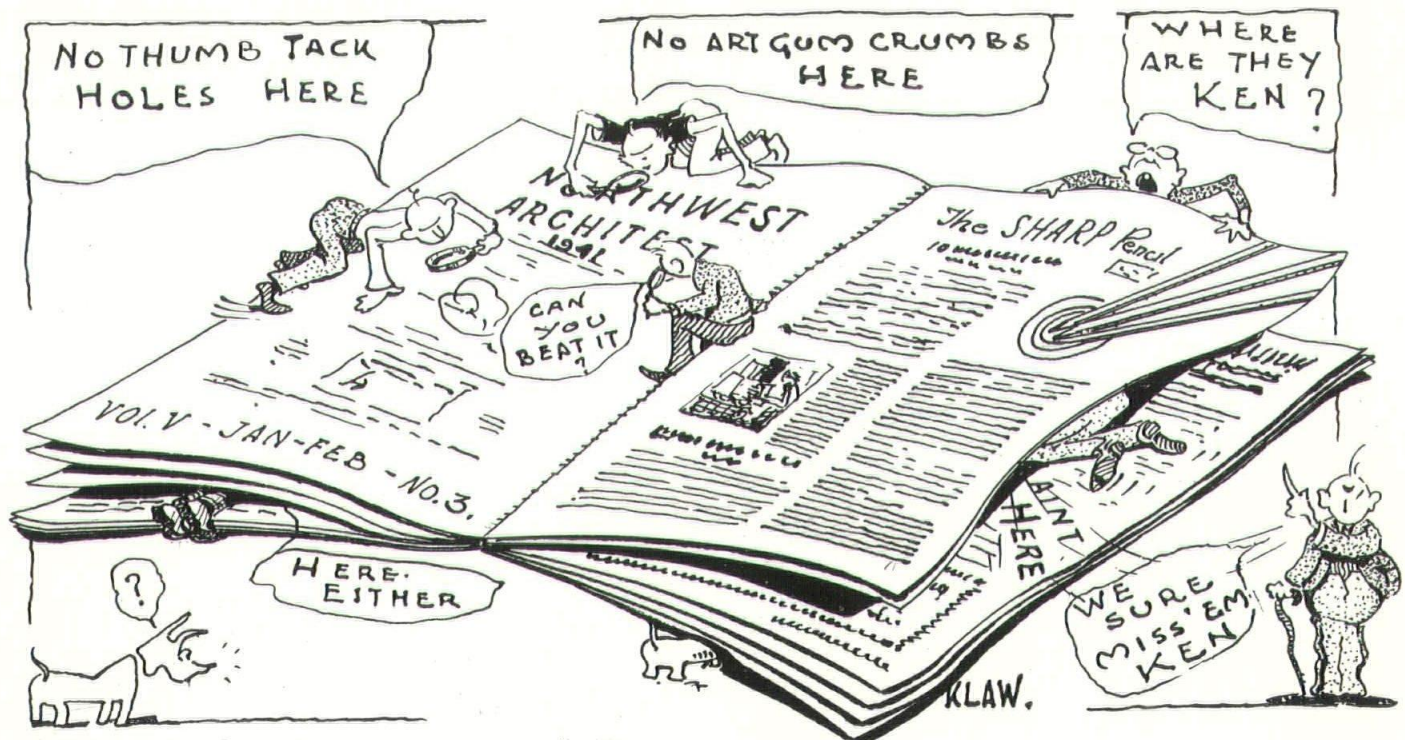 NO THUMB TACK
HOLES HERE
NO ART GUM CRUMBS
HERE
WHERE
ARE THEY
KEN ?
NORTHWEST
ARCHITECT
1941
The SHARP Pencil
CAN
YOU
BEAT IT
?
VOL. V - JAN-FEB - NO. 3.
AINT
HERE
HERE.
EITHER
?
WE
SURE
MISS'EM
KEN
KLAW.